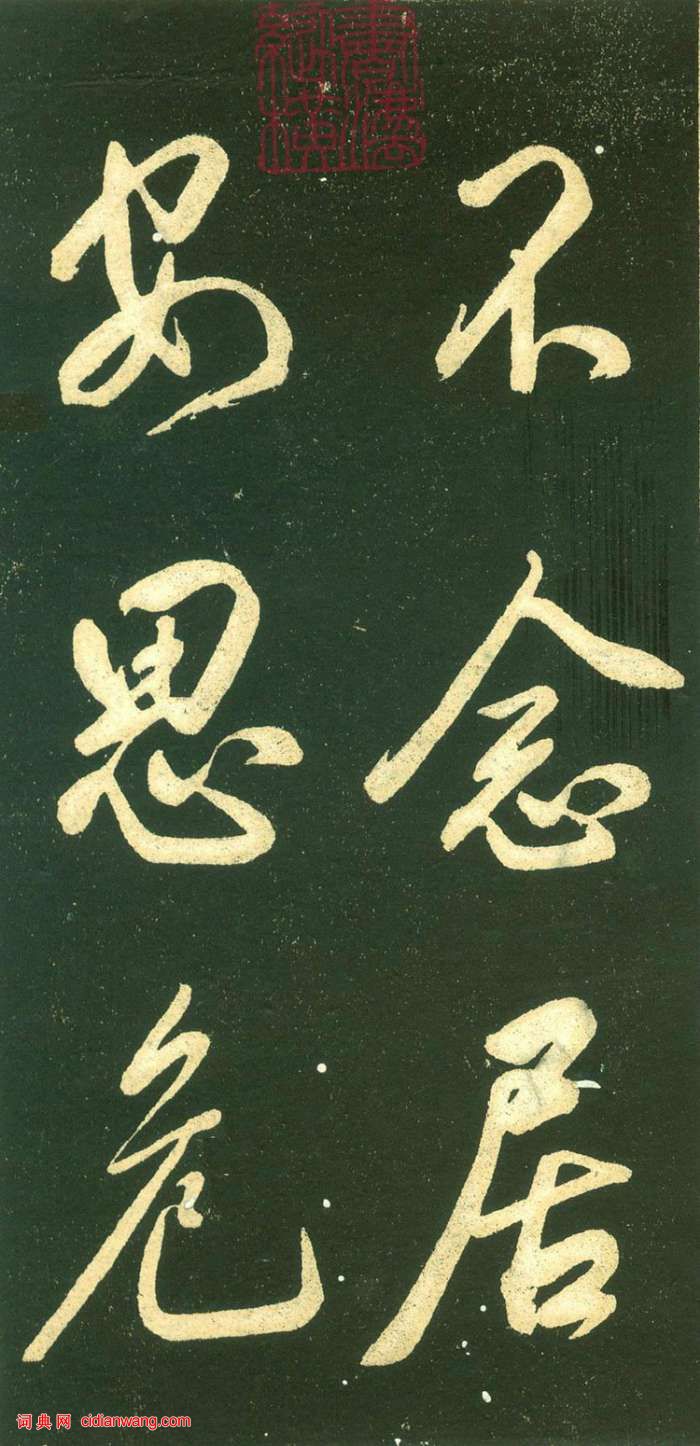 不念居
安思危
词典网 cidianwang.com